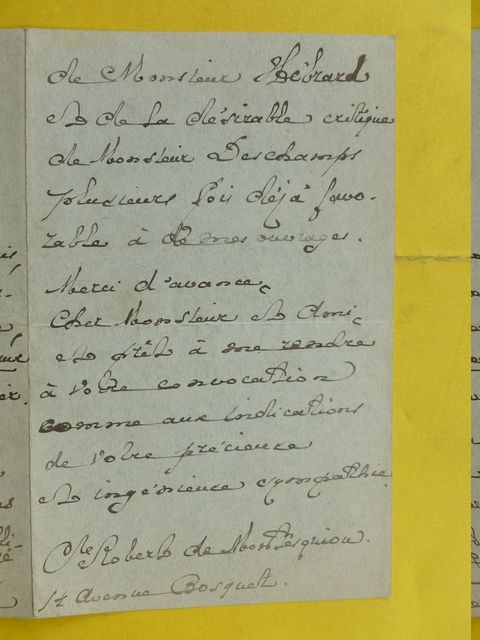 de Monsieur Hébrard
et de la désirable critique
de Monsieur Deschamps
plusieurs fois déjà favo-
rable à de mes ouvrages.
Merci d'avance,
Cher Monsieur et Ami,
et prêt à me rendre
à votre convocation
comme aux indications
de votre précieuse
et ingénieuse sympathie.
Cte Robert de Montesquiou.
14 Avenue Bosquet.